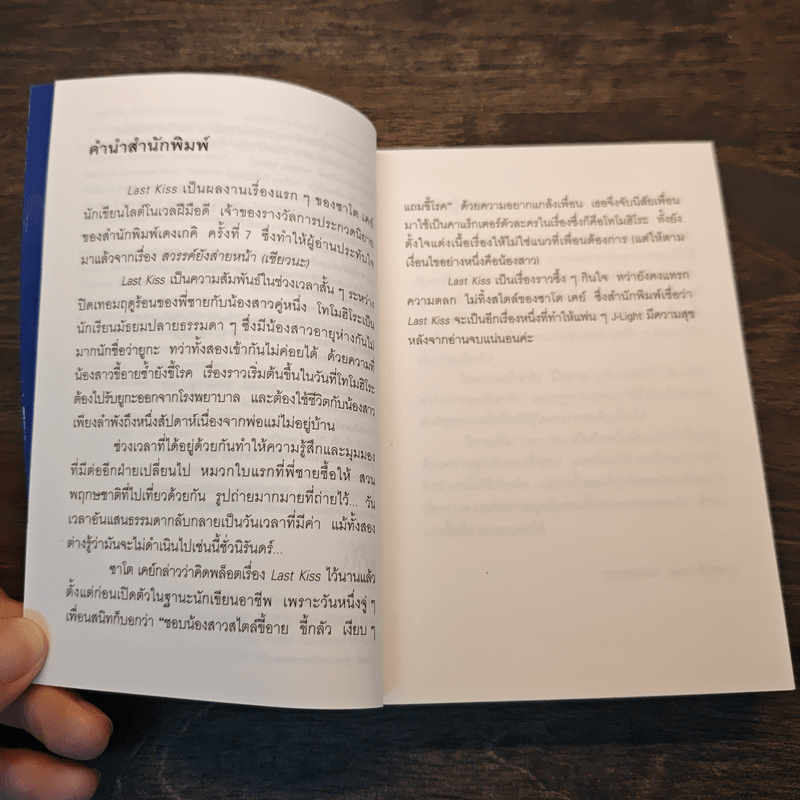 คำนำสำนักพิมพ์
Last Kiss เป็นผลงานเรื่องแรก ๆ ของซาโต เคย์
นักเขียนไลต์โนเวลฝีมือดี เจ้าของรางวัลการประกวดนิยาย
ของสำนักพิมพ์เดงเกคิ ครั้งที่ 7 ซึ่งทำให้ผู้อ่านประทับใจ
มาแล้วจากเรื่อง สวรรค์ยังส่ายหน้า (เชียวนะ)
Last Kiss เป็นความสัมพันธ์ในช่วงเวลาสั้น ๆ ระหว่าง
ปิดเทอมฤดูร้อนของพี่ชายกับน้องสาวคู่หนึ่ง โทโมฮิโระเป็น
นักเรียนมัธยมปลายธรรมดา ๆ ซึ่งมีน้องสาวอายุห่างกันไม่
มากนักชื่อว่ายูกะ ทว่าทั้งสองเข้ากันไม่ค่อยได้ ด้วยความที่
น้องสาวขี้อายซ้ำยังขี้โรค เรื่องราวเริ่มต้นขึ้นในวันที่โทโมฮิโระ
ต้องไปรับยูกะออกจากโรงพยาบาล และต้องใช้ชีวิตกับน้องสาว
เพียงลำพังถึงหนึ่งสัปดาห์เนื่องจากพ่อแม่ไม่อยู่บ้าน
ช่วงเวลาที่ได้อยู่ด้วยกันทำให้ความรู้สึกและมุมมอง
ที่มีต่ออีกฝ่ายเปลี่ยนไป หมวกใบแรกที่พี่ชายซื้อให้ สวน
พฤกษชาติที่ไปเที่ยวด้วยกัน รูปถ่ายมากมายที่ถ่ายไว้... วัน
เวลาอันแสนธรรมดากลับกลายเป็นวันเวลาที่มีค่า แม้ทั้งสอง
ต่างรู้ว่ามันจะไม่ดำเนินไปเช่นนี้ชั่วนิรันดร์...
ซาโต เคย์กล่าวว่าคิดพล็อตเรื่อง Last Kiss ไว้นานแล้ว
ตั้งแต่ก่อนเปิดตัวในฐานะนักเขียนอาชีพ เพราะวันหนึ่งจู่ ๆ
เพื่อนสนิทก็บอกว่า "ชอบน้องสาวสไตล์ขี้อาย ขี้กลัว เงียบ ๆ
แถมขี้โรค" ด้วยความอยากแกล้งเพื่อน เธอจึงจับนิสัยเพื่อน
มาใช้เป็นคาแร็กเตอร์ตัวละครในเรื่องซึ่งก็คือโทโมฮิโระ ทั้งยัง
ตั้งใจแต่งเนื้อเรื่องให้ไม่ใช่แนวที่เพื่อนต้องการ (แต่ให้ตาม
เงื่อนไขอย่างหนึ่งคือน้องสาว)
Last Kiss เป็นเรื่องราวซึ้ง ๆ กินใจ ทว่ายังคงแทรก
ความตลก ไม่ทิ้งสไตล์ของซาโต เคย์ ซึ่งสำนักพิมพ์เชื่อว่า
Last Kiss จะเป็นอีกเรื่องหนึ่งที่ทำให้แฟน ๆ J-Light มีความสุข
หลังจากอ่านจบแน่นอนค่ะ